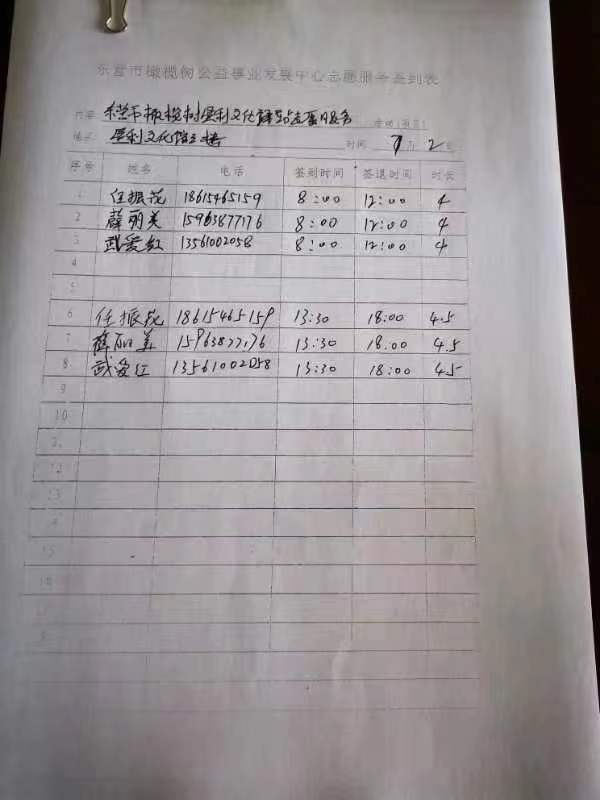 东营市橄榄树公益事业发展中心志愿服务签到表
内容: 东营市橄榄树垦利文化馆站志愿服务
地点: 垦利文化馆三楼 时间 7月2日
序号 姓名 电话 签到时间 签退时间 时长
1 任振花 18615465159 8:00 12:00 4
2 薛丽美 15963877176 8:00 12:00 4
3 武爱红 13561002058 8:00 12:00 4
4
5
6 任振花 18615465159 13:30 18:00 4.5
7 薛丽美 15963877176 13:30 18:00 4.5
8 武爱红 13561002058 13:30 18:00 4.5
9
10
12
13